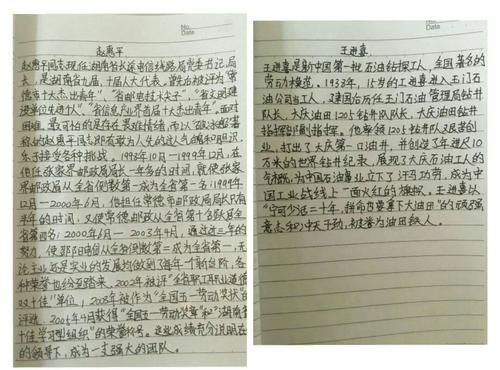 No.
Date
赵惠平
赵惠平同志现任湖南省长途电信线路局党委书记,局
长,是湖南省九届,十届人大代表。曾先后被评为"常
德市十大杰出青年"、"省邮电技术夫子"、"省文明建
设单位先进个人"、"省信息产业界首届十大杰出青年"。面对
困难,最可怕的是存在畏难情绪,而以"
称的赵惠平同志却有敢为人先的这气魄和胆识,
乐于接受各种挑战。1998年10月-1999年12月,在
他任张家界邮政局局长一年多的时间,就使张家
界邮政从全省倒数第一成为全省第一名;1999年
12月-2000年6月,他担任常德市邮政局局长只有
半年的时间;又使常德邮政从全省第十名跃居全
省第四名;2000年6月-2003年4月,通过这三年的
努力,使邵阳电信从全省倒数第一成为全省第一,无
论主业还是实业的发展均做到了每年一个新台阶,各
种荣誉也纷至踏来,2002年被评"全省职工职业道德
双十佳"单位,2003年被作为"全国五一劳动奖状"的
评选,2005年4月获得"全国五一劳动奖章"和"湖南省
十佳学习型组织"的荣誉称号。这些成绩充分说明在
的领导下,成为一支强大的团队。
No.
Date
王进喜
王进喜是新中国第一批石油钻探工人,全国著名的
劳动模范。1938年,15岁的王进喜进入玉门石
油公司当工人,建国后历任玉门石油管理局钻井
队长、大庆油田1205钻井队队长、大庆油田钻井
指挥部副指挥。他率领1205钻井队艰苦创
业,打出了大庆第一口油井,并创造了年进尺10
万米的世界钻井纪录,展现了大庆石油工人的
气概,为中国石油事业立下了汗马功劳,成为中
国工业战线上一面火红的旗帜。王进喜以
"宁可少活二十年,拼命也要拿下大油田"的顽强
意志和冲天干劲,被誉为油田铁人。